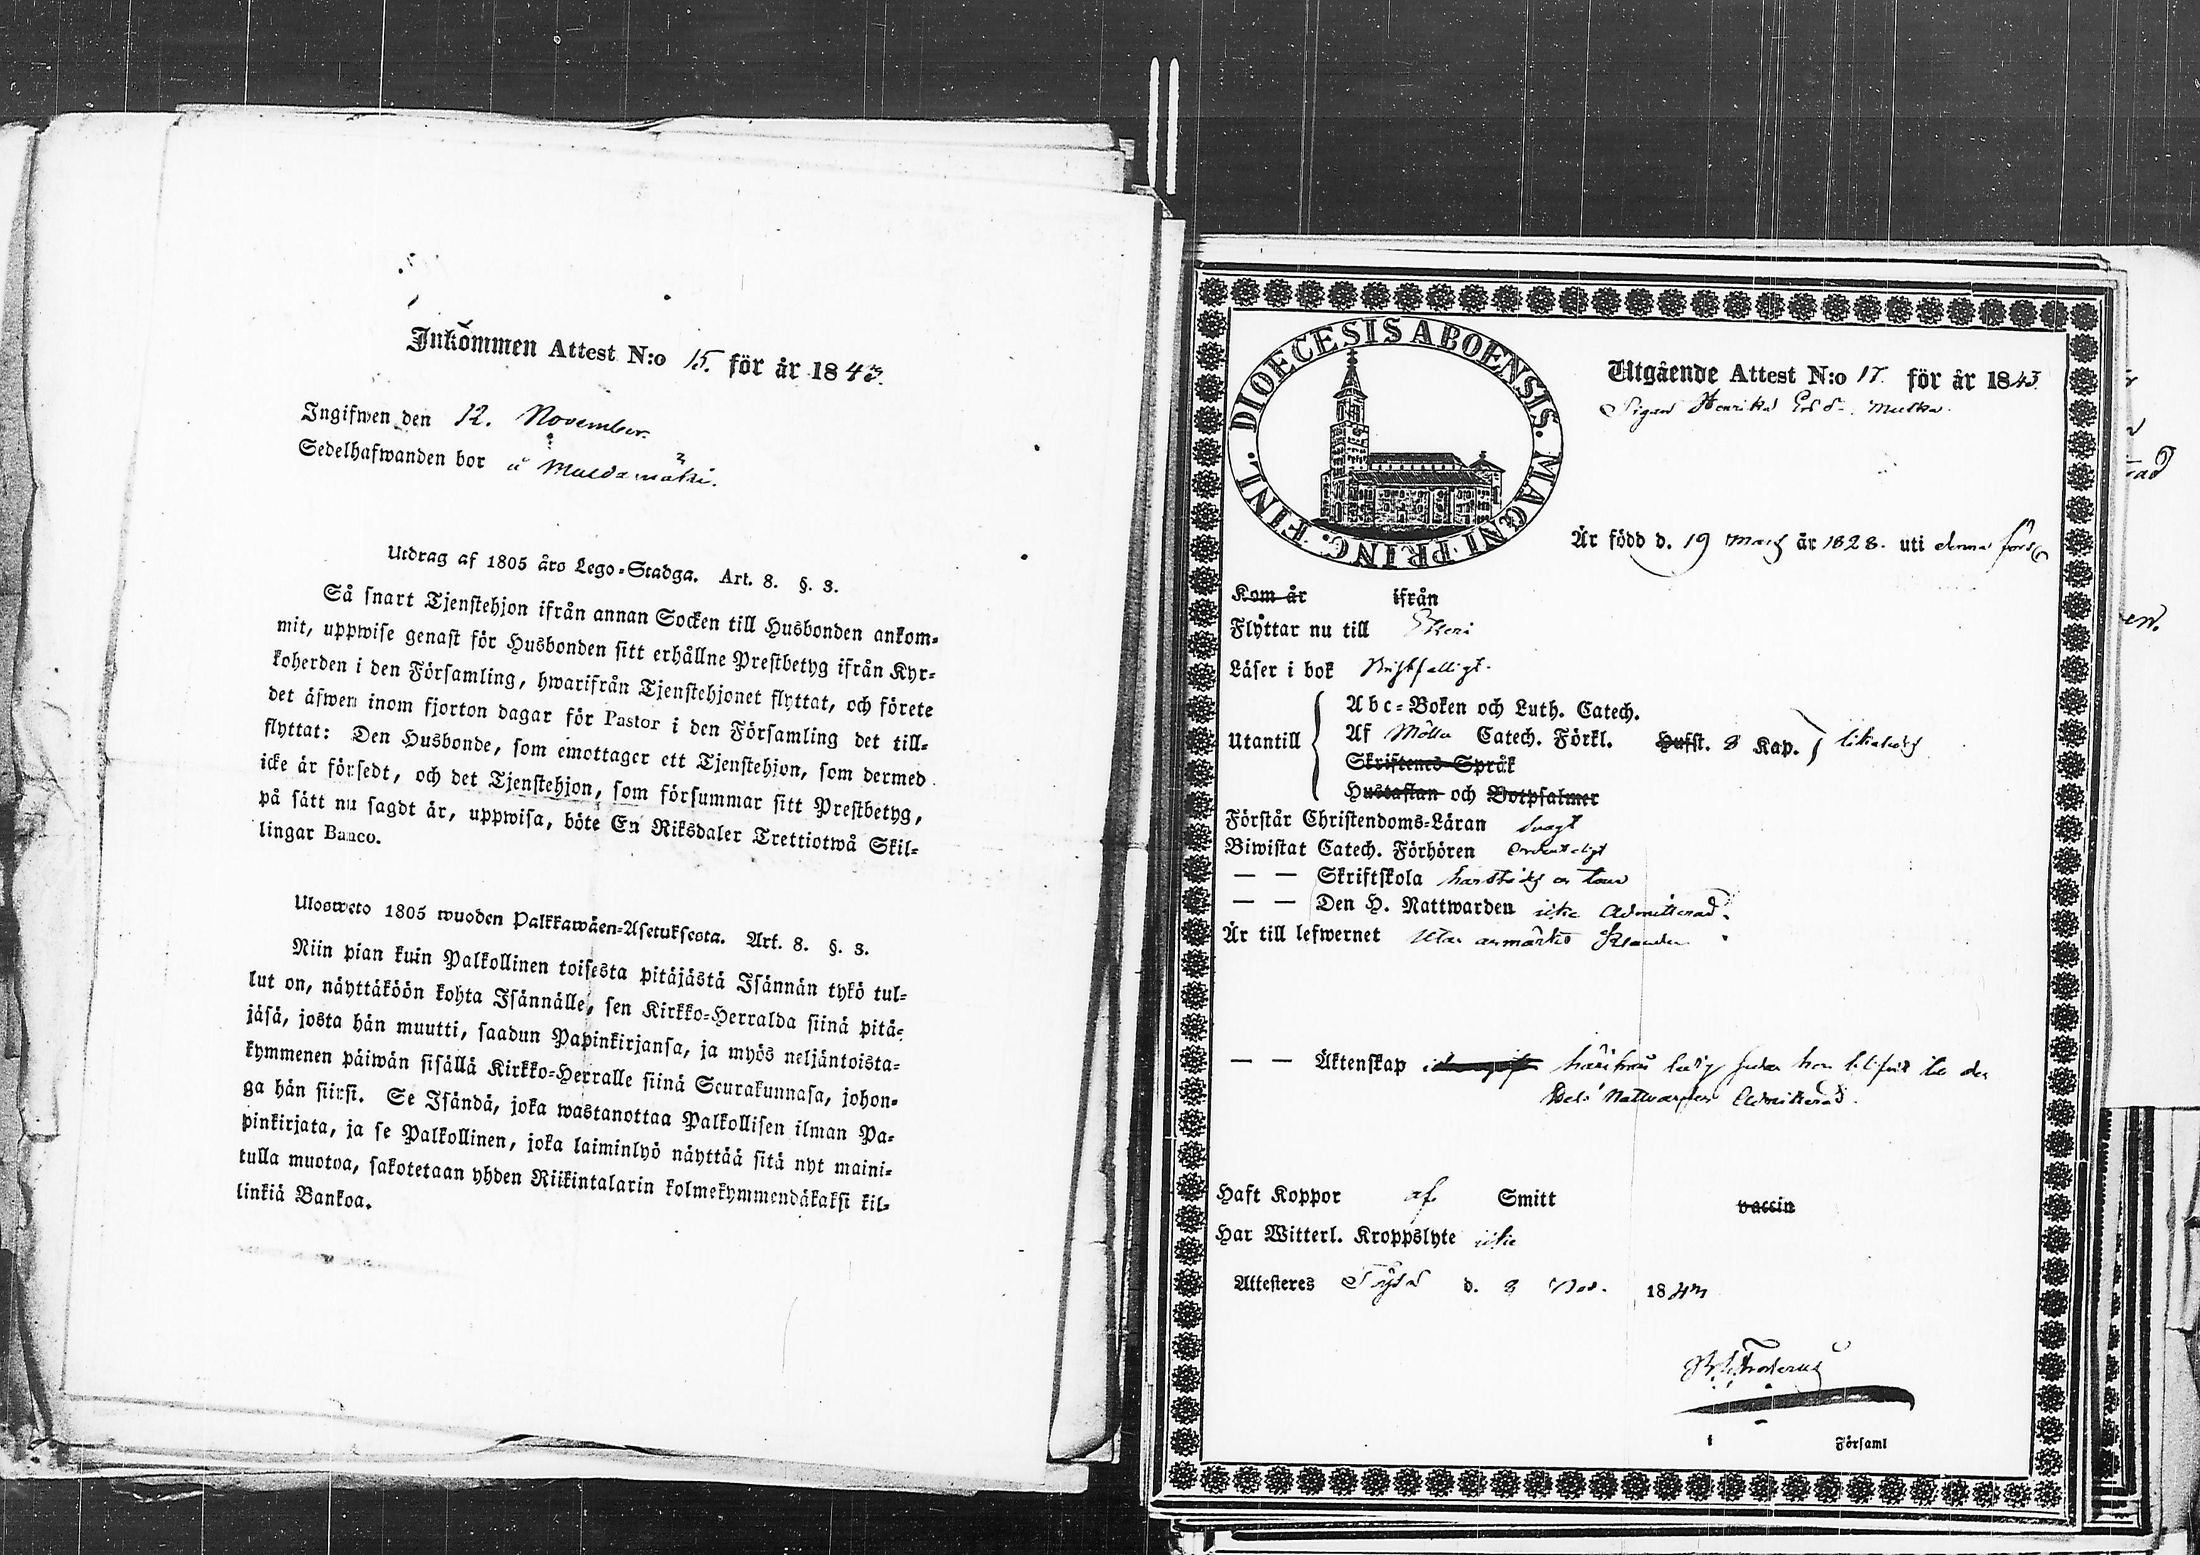 Inkommen Attest N:o 15. för år 1843.
Ingifwen den 12. November.
Sedelhafwanden bor å
Utdrag af 1805 åro Lego-Stadga. Art. 8. §. 3.
Så snart Tjenstehjon ifrån annan Socken till Husbonden ankom-
mit, uppwise genast för Husbonden sitt erhållne Prestbetyg ifrån Kyr-
koherden i den Församling, hwarifrån Tjenstehjonet flyttat, och förete
det äfwen inom fjorton dagar för Pastor i den Församling det till-
flyttat: Den Husbonde, som emottager ett Tjenstehjon, som dermed
icke är försedt, och det Tjenstehjon, som försummar sitt Prestbetyg,
på sätt nu sagdt är, uppwisa, böte En Riksdaler Trettiotwå Skil-
lingar Banco.
Ulosweto 1805 wuoden Palkkawäen-Asetuksesta. Art. 8. §. 3.
Niin pian kuin Palkollinen toisesta pitäjästä Isännän tykö tul-
lut on, näyttäköön kohta Isännälle, sen Kirkko-Herralda siinä pitä-
jäsä, josta hän muutti, saadun Papinkirjansa, ja myös neljäntoista-
kymmenen päiwän sisällä Kirkko-Herralle siinä Seurakunnasa, johon-
ga hän siirsi. Se Isändä, joka wastanottaa Palkollisen ilman Pa-
pinkirjata, ja se Palkollinen, joka laiminlyö näyttää sitä nyt maini-
tulla muotoa, sakotetaan yhden Riikintalarin kolmekymmendäkaksi kil-
linkiä Bankoa.
DIOECESIS ABOENSIS. MAGNI PRINC. FINL.
Utgående Attest N:o 17. för år 1843.
Pigan Henrika
Är född d. 19 år 1828. uti denna förs
Kom år ifrån
Flyttar nu till
Läser i bok
Abc-Boken och Luth. Catech.
Utantill Af Catech. Förkl. Husst. 8 Kap.
Skriftenes Språk
Hustaflan och Botpsalmer
Förstår Christendoms-Läran svagt
Biwistat Catech. Förhören ordentligt
— — Skriftskola
— — Den H. Nattwarden icke Admitterad.
Är till lefwernet utan anmärkt
— — Äktenskap
Nattvarden Admitterad.
Haft Koppor af Smitt vaccin
Har Witterl. Kroppslyte icke
Attesteres d. 8 Nov. 1843
Församl